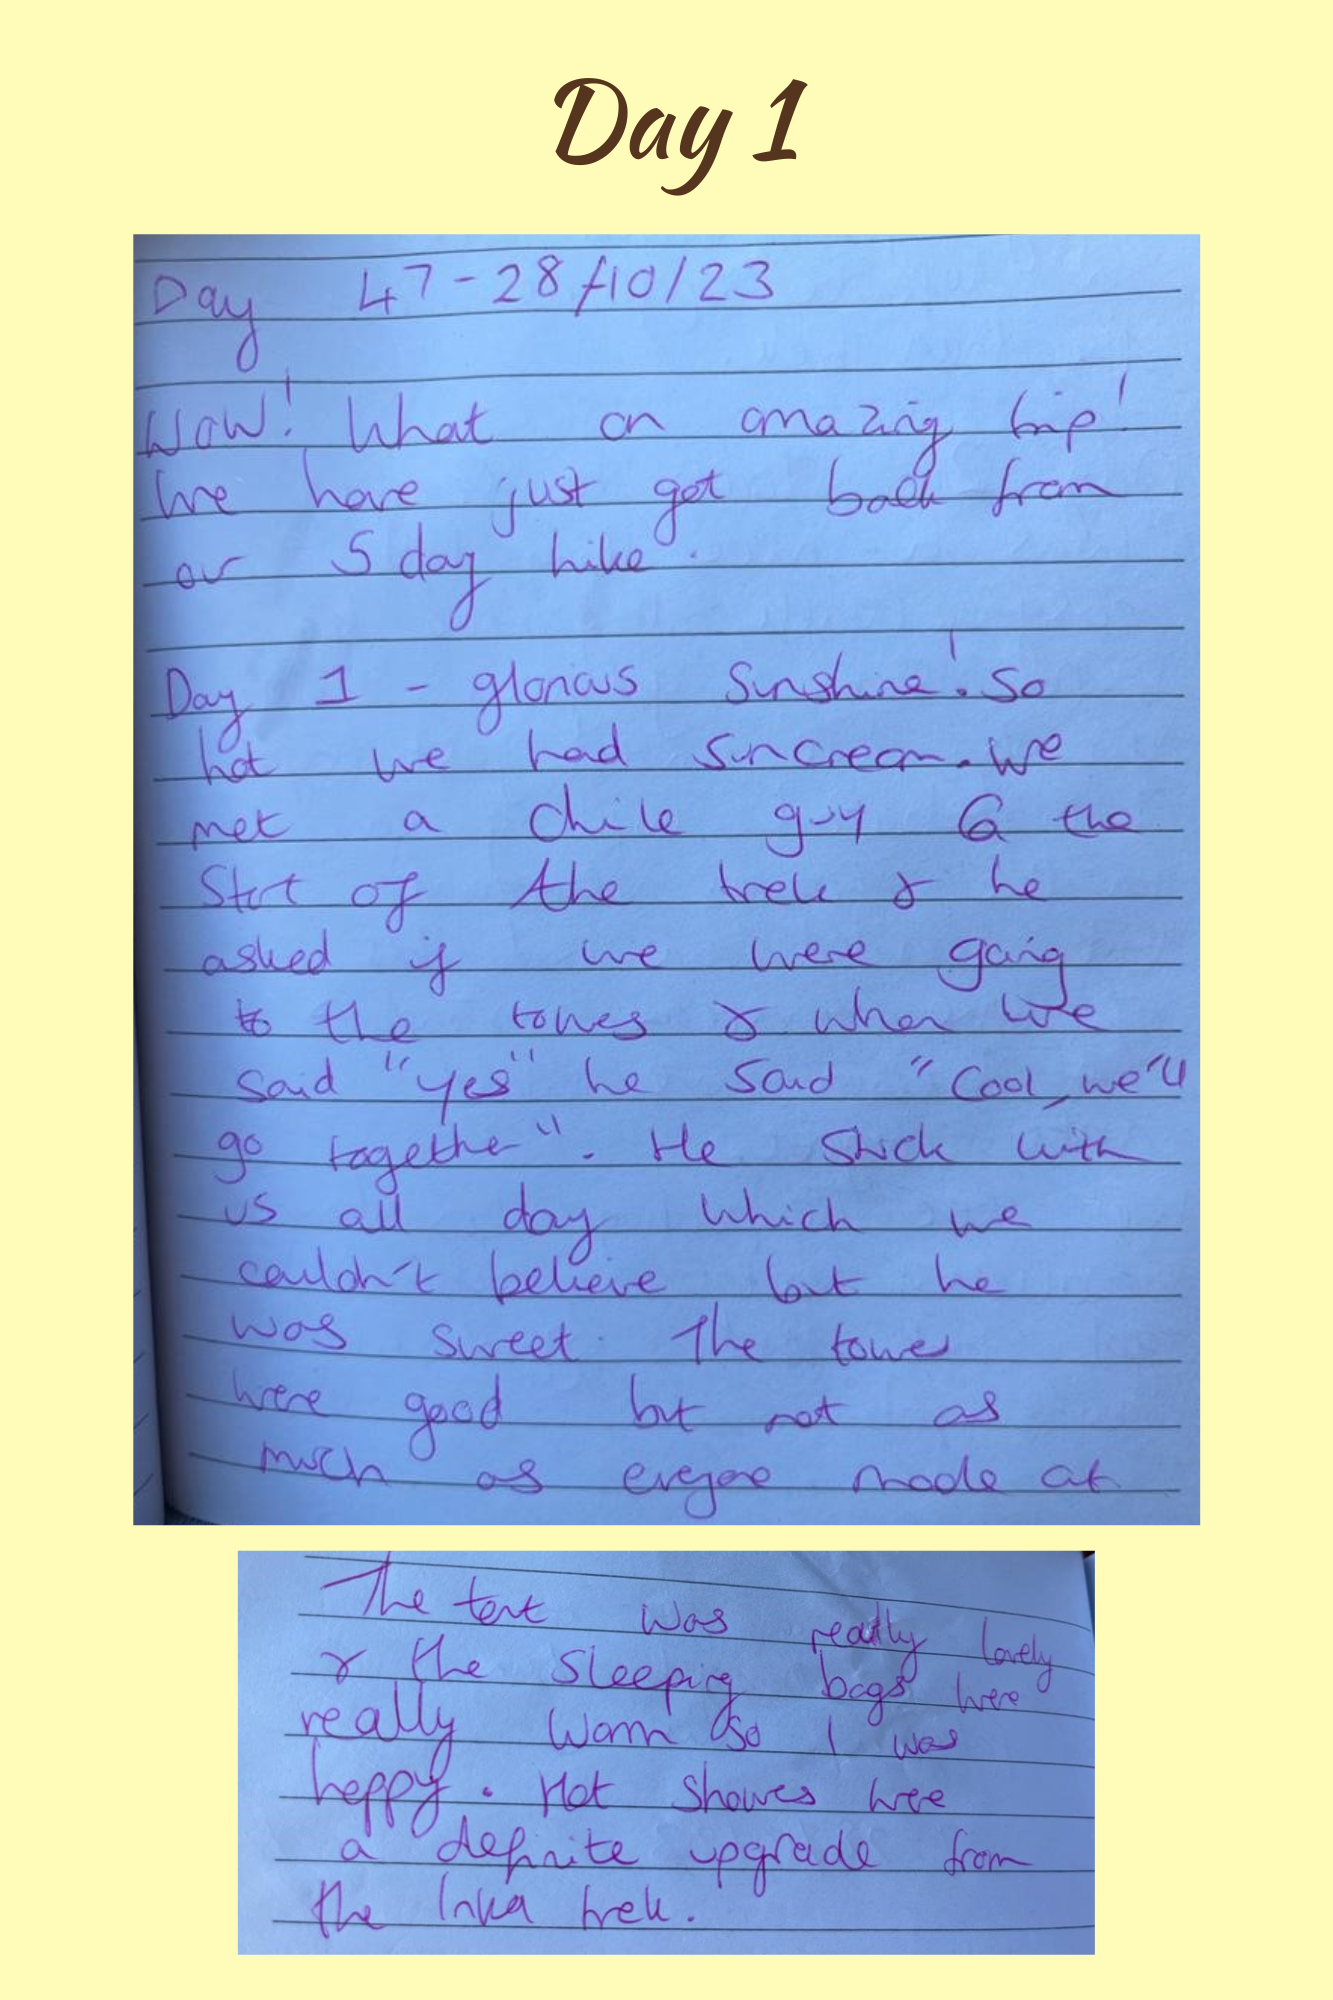 Day 1
Day 47 - 28/10/23
Wow! What an amazing trip!
We have just got back from
our 5 day hike.
Day 1 - glorious sunshine! So
hot we had suncream. We
met a chile guy @ the
Start of the trek & he
asked if we were going
to the towes & when we
said "yes" he said "Cool, we'll
go together". He stuck with
us all day which we
couldn't believe but he
was sweet. The towes
were good but not as
much as everyone made at
The tent was really lovely
& the sleeping bags were
really warm so I was
happy. Hot showes were
a definite upgrade from
the Inka trek.